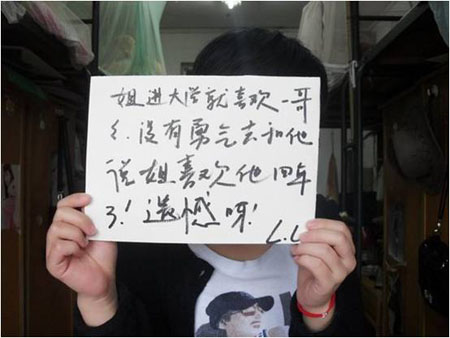 姐进大学就喜欢一哥
没有勇气去和他
说姐喜欢他四年
了！遗憾呀！
L.L